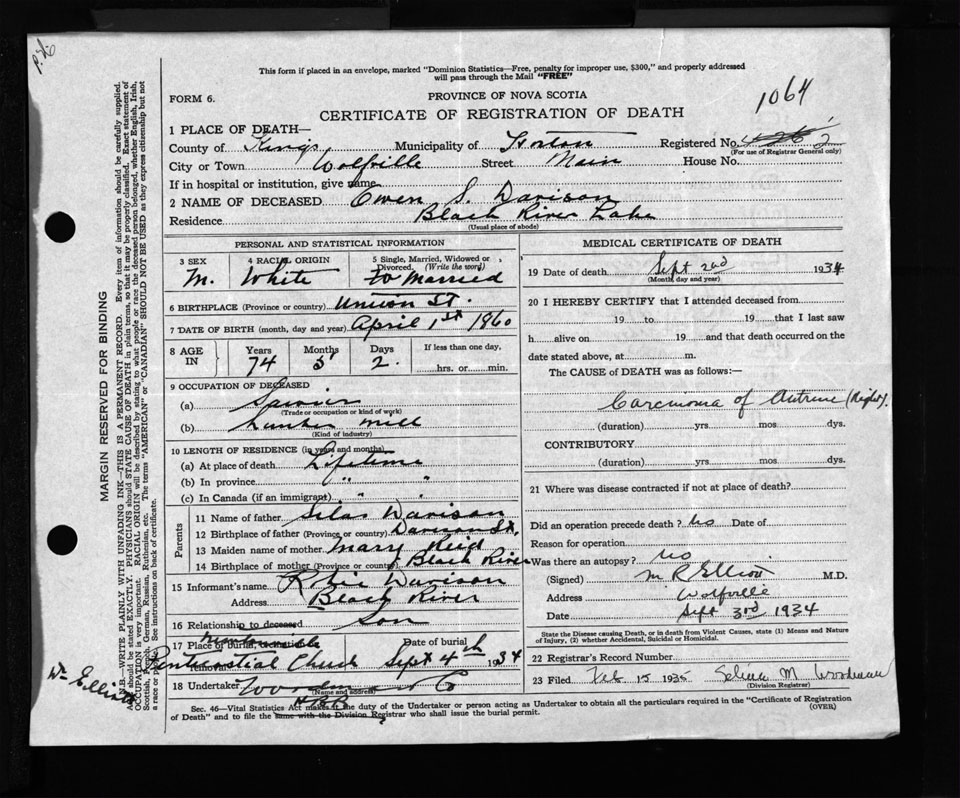 P.H.
This form if placed in an envelope, marked "Dominion Statistics—Free, penalty for improper use, $300," and properly addressed
will pass through the Mail "FREE"
FORM 6.
PROVINCE OF NOVA SCOTIA
1064
CERTIFICATE OF REGISTRATION OF DEATH
1 PLACE OF DEATH—
County of Kings Municipality of Horton Registered No. 2
(For use of Registrar General only)
City or Town Wolfville Street Main House No.
If in hospital or institution, give name
2 NAME OF DECEASED Owen S. Davison
Residence Black River Lake
(Usual place of abode)
MARGIN RESERVED FOR BINDING
N.B.—WRITE PLAINLY WITH UNFADING INK—THIS IS A PERMANENT RECORD. Every item of information should be carefully supplied.
AGE should be stated EXACTLY. PHYSICIANS should STATE CAUSE OF DEATH in plain terms, so that it may be properly classified. Exact statement of
OCCUPATION is very important. RACIAL ORIGIN will be described by stating to what people or race the deceased person belonged, whether English, Irish,
Scottish, French, German, Russian, Ruthenian, etc. The terms "AMERICAN" or "CANADIAN" SHOULD NOT BE USED as they express citizenship but not
a race or people. See instructions on back of certificate.
PERSONAL AND STATISTICAL INFORMATION
3 SEX 4 RACIAL ORIGIN 5 Single, Married, Widowed or
Divorced. (Write the word)
M. White Married
6 BIRTHPLACE (Province or country) Union St.
7 DATE OF BIRTH (month, day and year) April 1st 1860
8 AGE IN Years Months Days If less than one day,
74 5 2. hrs. or min.
9 OCCUPATION OF DECEASED
(a) Sawier
(Trade or occupation or kind of work)
(b) Lumber Mill
(Kind of industry)
10 LENGTH OF RESIDENCE (in years and months)
(a) At place of death Lifetime
(b) In province " "
(c) In Canada (if an immigrant) " "
Parents
11 Name of father Silas Davison
12 Birthplace of father (Province or country) Davison St.
13 Maiden name of mother Mary Reid
14 Birthplace of mother (Province or country) Black River
15 Informant's name Davison
Address Black River
16 Relationship to deceased Son
17 Place of burial, cremation or removal Date of burial
Penticostial Church Sept 4th 1934
Wm Elliott
18 Undertaker
(Name and address)
MEDICAL CERTIFICATE OF DEATH
19 Date of death Sept 2nd 1934
(Month, day and year)
20 I HEREBY CERTIFY that I attended deceased from
19 to 19 that I last saw
h alive on 19 and that death occurred on the
date stated above, at m.
The CAUSE of DEATH was as follows:—
Carcinoma of Antrum (Right).
(duration) yrs mos dys.
CONTRIBUTORY
(duration) yrs mos dys.
21 Where was disease contracted if not at place of death?
Did an operation precede death? No Date of
Reason for operation
Was there an autopsy? No
(Signed) M R Elliott M.D.
Address Wolfville
Date Sept 3rd 1934
State the Disease causing Death, or in death from Violent Causes, state (1) Means and Nature
of Injury, (2) whether Accidental, Suicidal or Homicidal.
22 Registrar's Record Number
23 Filed Feb 15 1935 Selina M Woodman
(Division Registrar)
Sec. 46—Vital Statistics Act makes it the duty of the Undertaker or person acting as Undertaker to obtain all the particulars required in the "Certificate of Registration
of Death" and to file the same with the Division Registrar who shall issue the burial permit. (OVER)